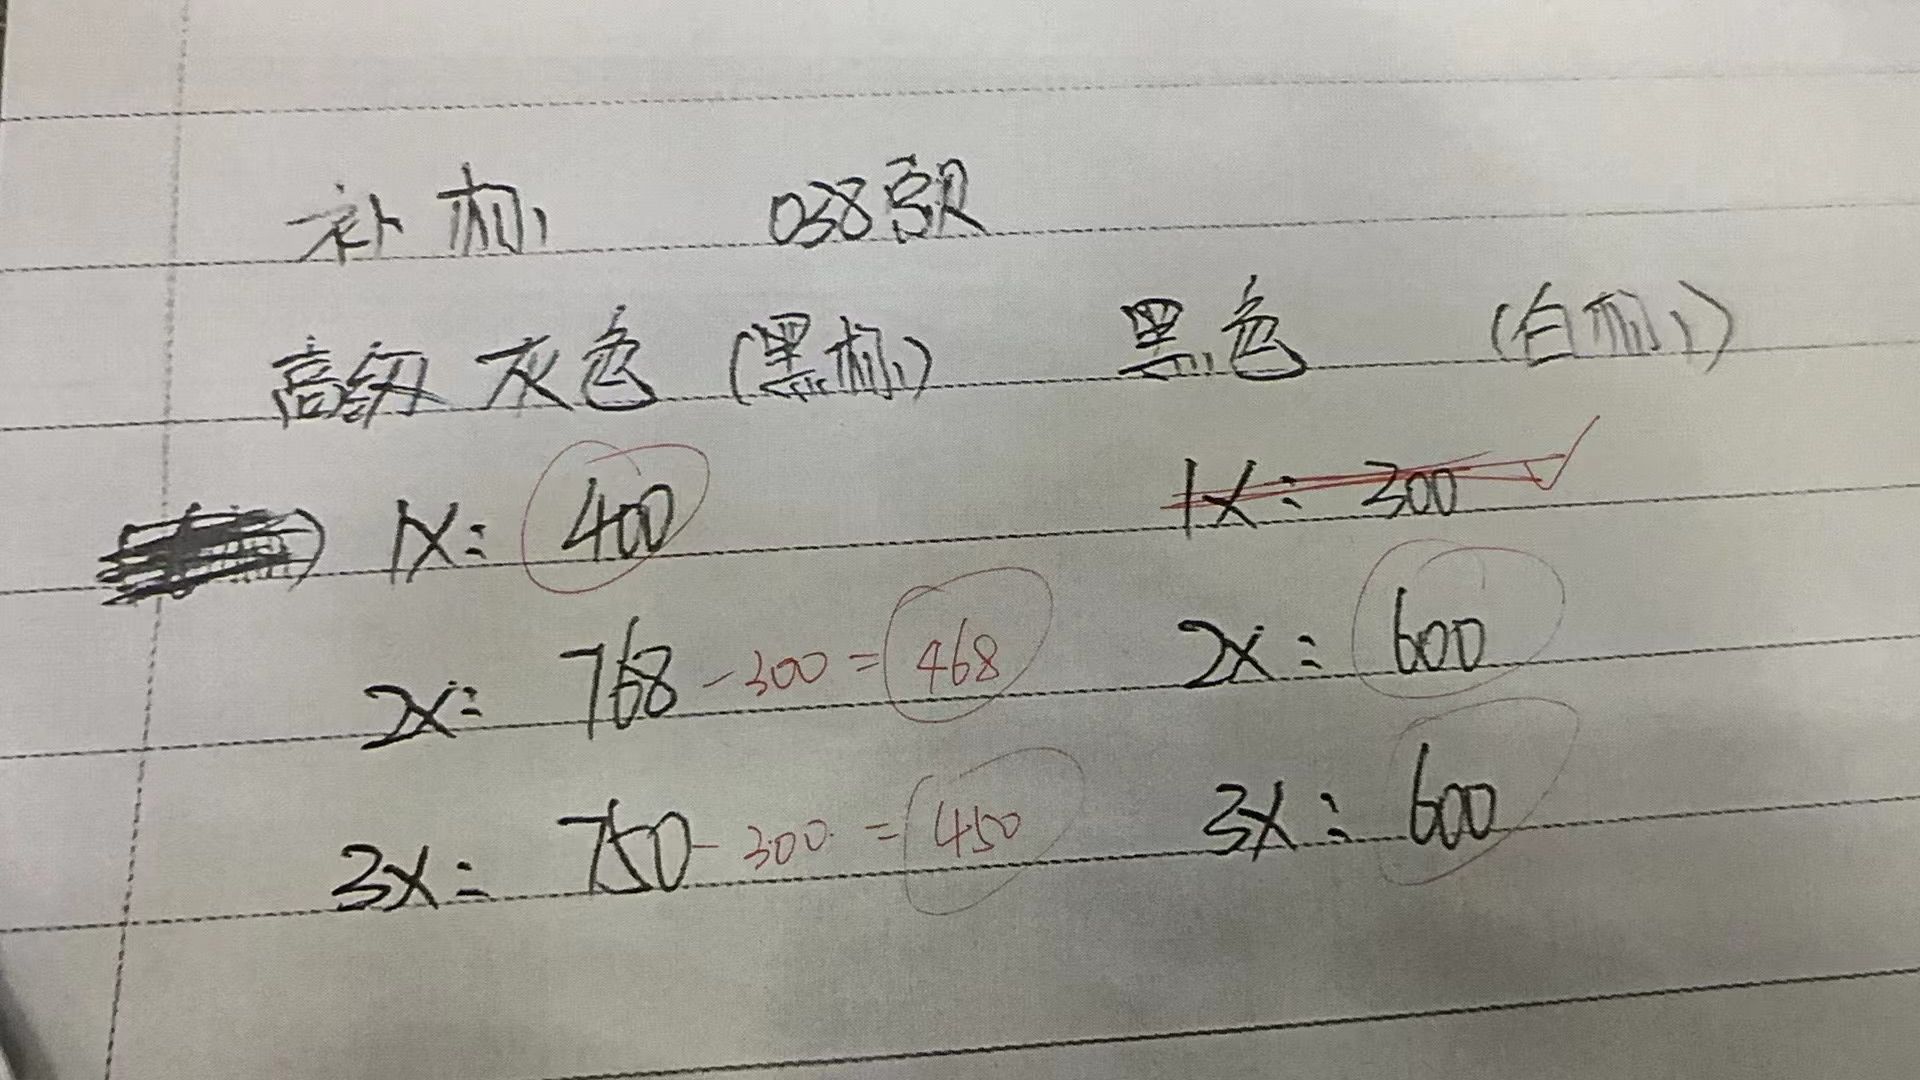 补标 038款
高级灰色 (黑标) 黑色 (白标)
1X: 400 1X: 300
2X: 768 - 300 = 468 2X: 600
3X: 750 - 300 = 450 3X: 600